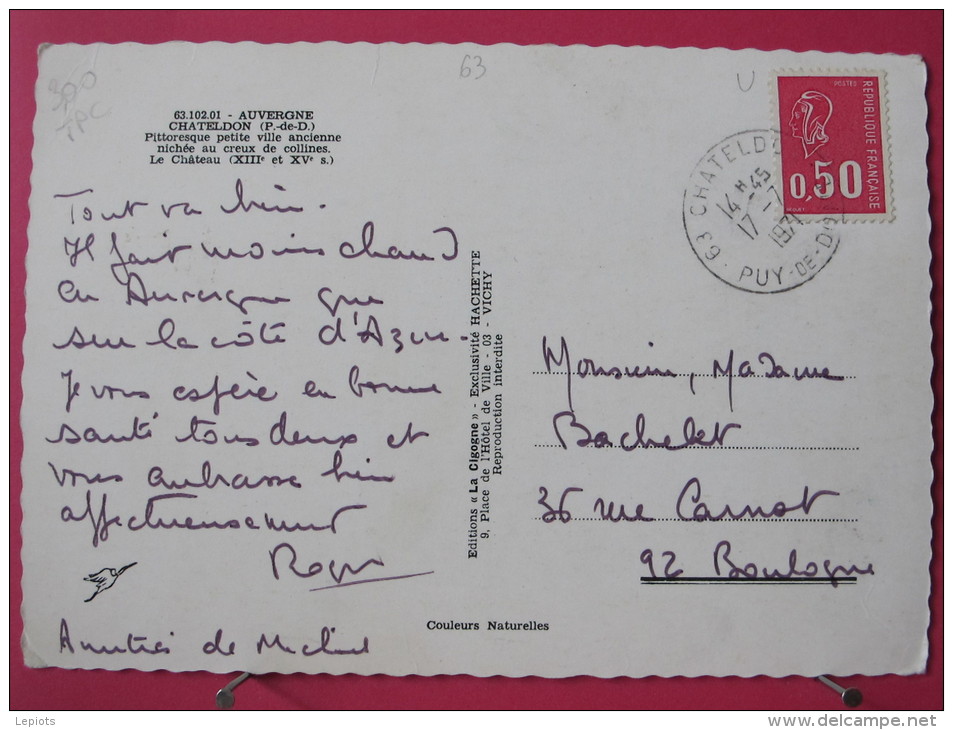 63
300
TPC
63.102.01 - AUVERGNE
CHATELDON (P.-de-D.)
Pittoresque petite ville ancienne
nichée au creux de collines.
Le Château (XIIIe et XVe s.)
Tout va bien.
Il fait moins chaud
en Auvergne que
sur la côte d'Azur.
Je vous espère en bonne
santé tous deux et
vous embrasse bien
affectueusement
Roger
Amitiés de
Editions « La Cigogne » - Exclusivité HACHETTE
9, Place de l'Hôtel de Ville - 03 - VICHY
Reproduction interdite
Couleurs Naturelles
POSTES
REPUBLIQUE FRANÇAISE
0,50
63 CHATELDON
14 H 45
17
PUY-DE-DOME
Monsieur, Madame
Bachelet
36 rue Carnot
92 Boulogne
Lepiots
www.delcampe.net